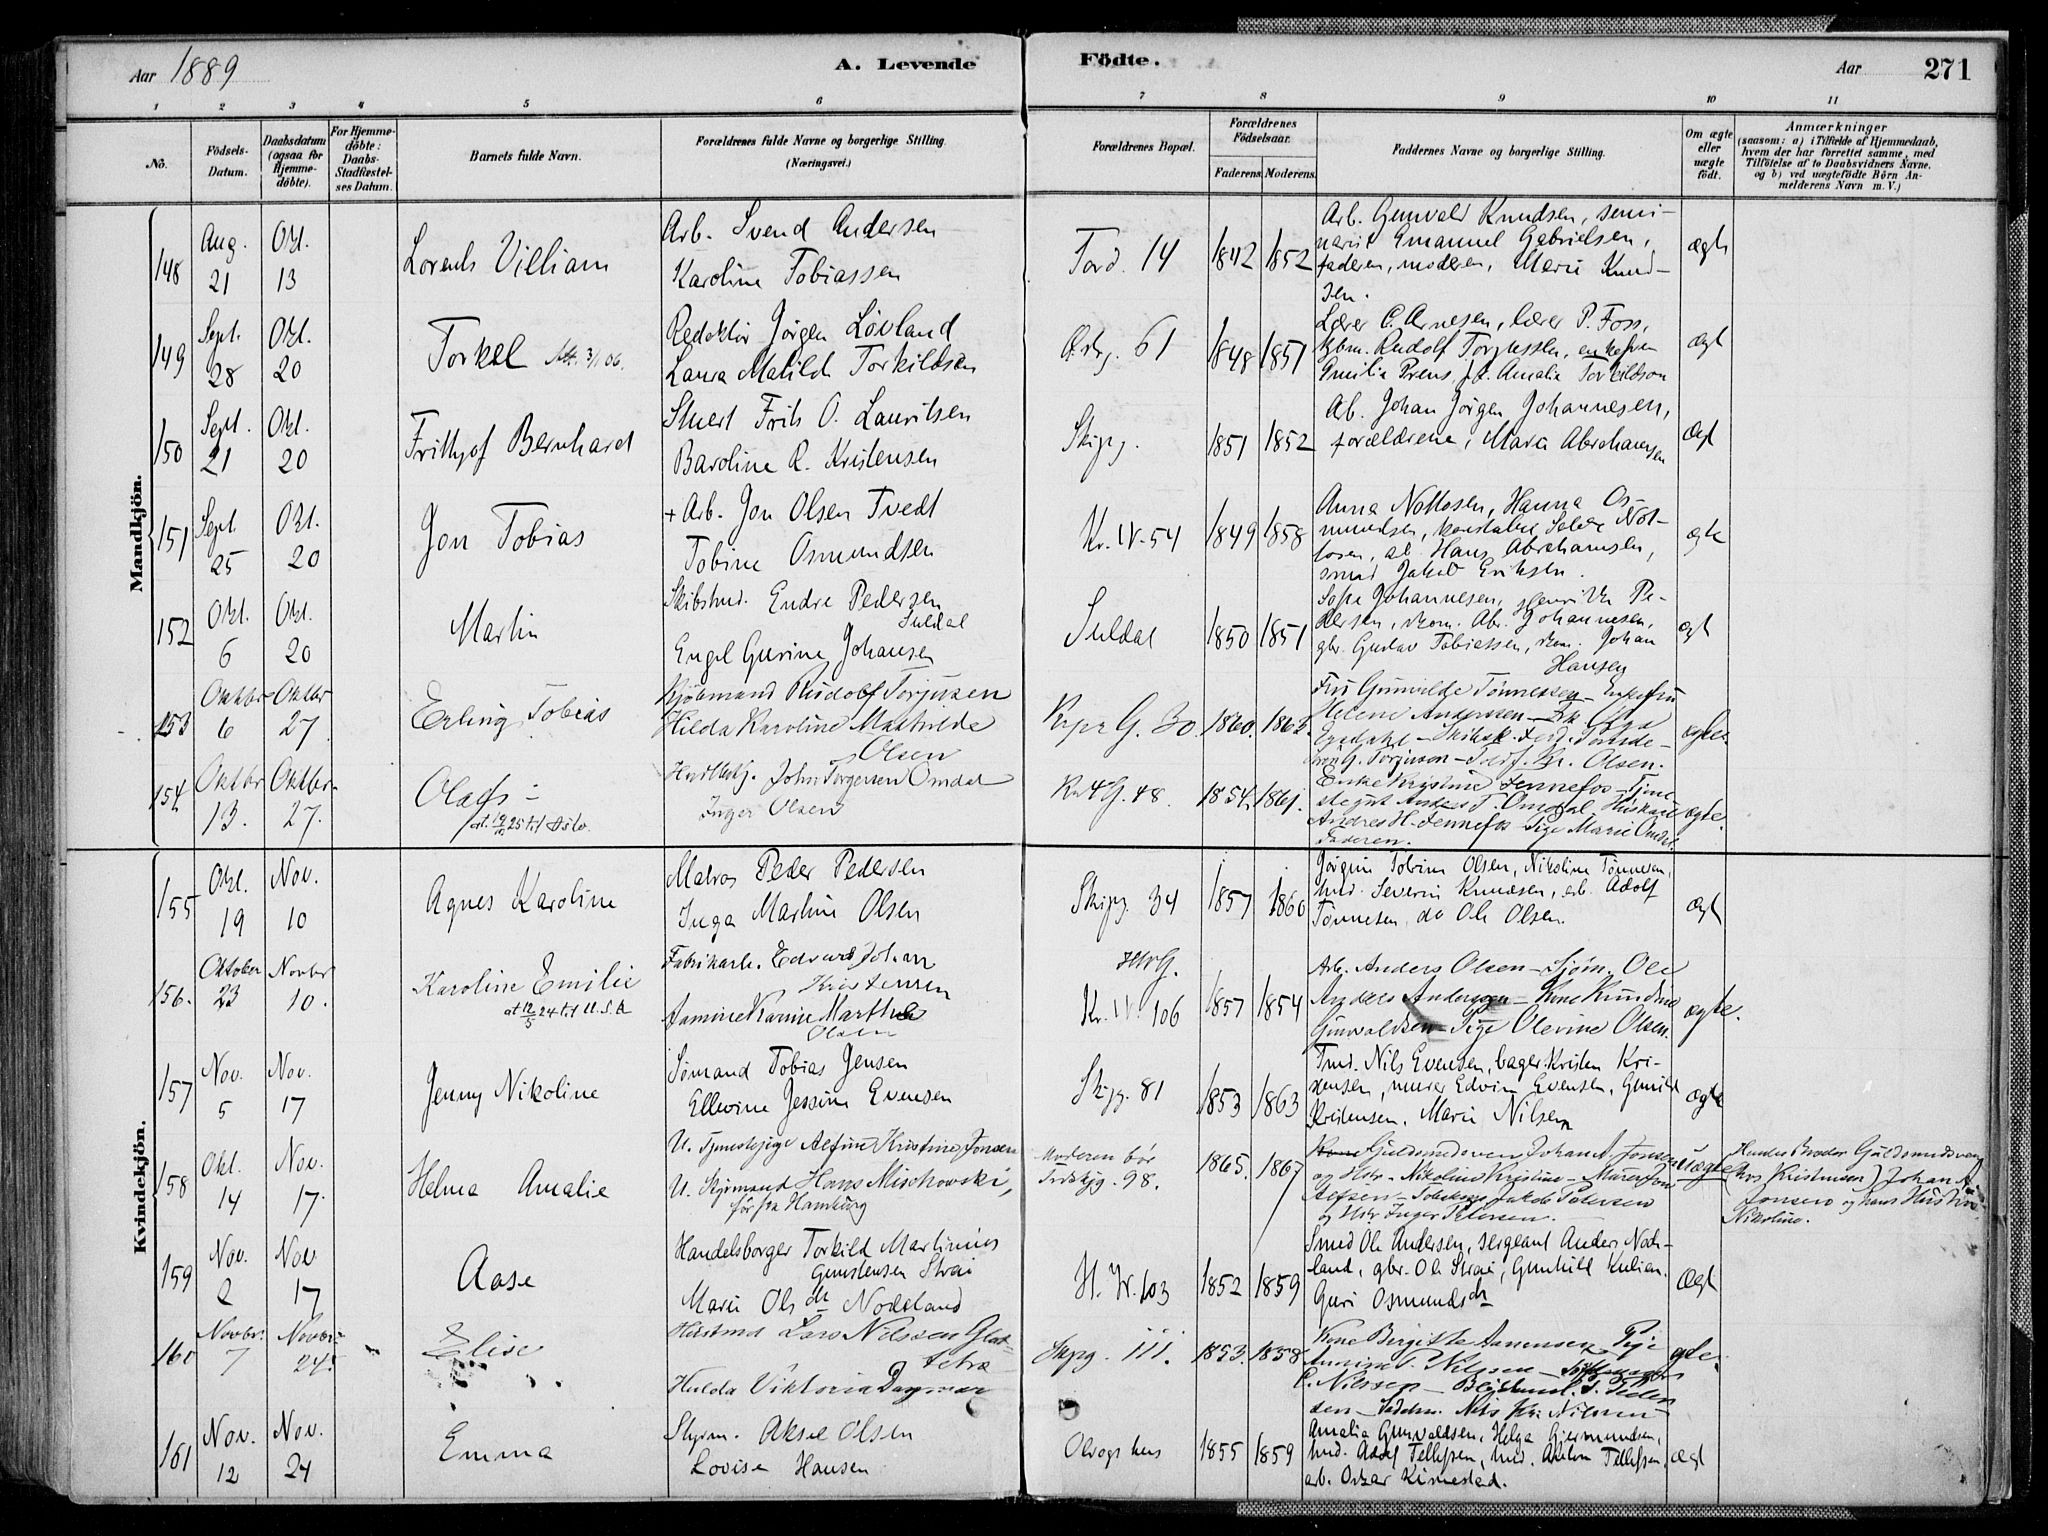 Aar 1889
A. Levende
Födte.
Aar
271
1 2 3 4 5 6 7 8 9 10 11
No.
Födsels-Datum.
Daabsdatum (ogsaa for Hjemme-döbte).
For Hjemme-döbte: Daabs-Stadfæstel-ses Datum.
Barnets fulde Navn.
Forældrenes fulde Navne og borgerlige Stilling.
(Næringsvei.)
Forældrenes Bopæl.
Forældrenes Födselsaar.
Faderens. Moderens.
Faddernes Navne og borgerlige Stilling.
Om ægte eller uægte födt.
Anmærkninger
(saasom: a) i Tilfælde af Hjemmedaab, hvem der har forrettet samme, med Tilföielse af to Daabsvidners Navne, og b) ved uægtefödte Börn An-melderens Navn m. V.)
Mandkjön.
148 Aug. 21 Okt. 13 Lorents Villiam
Arb. Svend Andersen
Karoline Tobiassen
Tord. 14 1842 1852
Arb. Gunvald Knudsen, semi-
narist Emanuel Gabrielsen,
faderen, moderen, Marie Knud-
sen.
ægte
149 Sept. 28 Okt. 20 Torkel
Redaktör Jörgen Lövland
Laura Matild Torkildsen
61 1848 1851
Lærer C. Arnesen, lærer P. Foss,
kjbm. Rudolf Torjussen, enkefru
Emilia Prens, fr. Amalia Torkildsen
ægt
150 Sept. 21 Okt. 20 Frithjof Bernhard
Stuert Frits O. Lauritsen
Baroline R. Kristensen
Skipg. 1851 1852
Arb. Johan Jörgen Johannesen,
forældrene, Maria Abrahamsen
ægt
151 Sept 25 Okt. 20 Jon Tobias
+ Arb. Jon Olsen Tvedt
Tobine Osmundsen
Kr. IV. 54 1849 1858
Anna Nottosen, Hanna Os-
mundsen, konstabel Salve Not-
tosen, ab. Hans Abrahamsen,
smed Jakob Eriksen.
ægte
152 Okt. 6 Okt. 20 Martin
Skibstmd. Endre Pedersen
Suldal
Engel Gurine Johansen
Suldal 1850 1851
Sofie Johannesen, Henrikke Pe-
dersen, skom. Abr. Johannesen,
gbr. Gustav Tobiassen, skom. Johan
Hansen
ægt
153 Oktbr 6 Oktbr 27. Erling Tobias
Kjöbmand Rudolf Torjusen
Hilda Karoline Mathilde
Olsen
G. 30. 1860. 1863.
Fru Gunvilde Tönnessen - Enkefru
Helene Anderssen - Frk. Olga
Egedahl - Skibsk. Ferd.
G. Torjusson - Kr. Olsen.
ægte.
154. Oktbr 13. Oktbr 27. Olaf
at. 19/10 25 til Oslo.
John Torgersen Omdal
Inger Olsen
Kr 4 G. 48. 1854. 1861.
Enke Kristine Fennefos - Tjene
stegut Anders T. Omdal, Huskone
Andres H. Fennefos - Pige Marie Omdal
Faderen.
ægte.
Kvindekjön.
155 Okt. 19 Nov. 10 Agnes Karoline
Matros Peder Pedersen
Inga Martine Olsen
Skipg. 34 1857 1860
Jörgine Tobine Olsen, Nikoline Tönnesen,
tmd. Severin Knudsen, arb. Adolf
Tönnesen, do Ole Olsen.
ægt
156. Oktober 23 Novbr 10. Karoline Emilie
at 12/5 24 til U.S.A
Fabrikarb. Edvard Johan
Kristensen
Aamine Karine Marthea
Olsen
Kr. IV. 106 1857 1854
Arb. Anders Olsen - Sjöm. Ole
Anders Andersen - Kone Kundine
Gunvaldsen - Pige Olevine Olsen.
ægte.
157 Nov. 5 Nov. 17 Jenny Nikoline
Sömand Tobias Jensen
Ellevine Jessine Evensen
Skipg. 81 1853 1863
Tmd. Nils Evensen, bager Kristen Kri-
stensen, murer Edvin Evensen, Gunhild
Kristensen, Marie Nilsen
ægte
158 Okt. 14 Nov. 17. Helma Amalie
U. Tjenestepige Alfine Kristine Jonsen
U. Styrmand Hans Mischowski,
för fra Hamburg
Moderen bor
98. 1865. 1867
Guldsmedsven Johan A. Jonsen
og Hstr. Nikoline Kristine - Murer Jens
Alfsen - Jakob Petersen
og Hstr Inger Petersen.
uægte
Hendes Broder Guldsmedsvend
(hos Kristensen) Johan A.
Jonsen og hans Hustru
Nikoline.
159 Nov. 2 Nov 17 Aase
Handelsborger Torkild Martinius
Gunstensen Strai
Marie Olsdtr Nodeland
H. W. 103 1852 1859
Smed Ole Andersen, sergeant Anders Node-
land, gbr. Ole Strai, Gunhild
Guri Osmundsdtr
ægt
160 Novbr. 7 Novbr. 24. Elise
Lars Nilssen
Hulda Viktoria Dagmar
Skpg. 111. 1853. 1858
Kone Birgitte Aanensen, Pige
Nilssen
C. Nilssen
Nils Kr. Nilssen
ægte.
161 Nov. 12 Nov. 24 Emma
Styrm. Aksel Olsen
Lovise Hansen
1855 1859
Amalia Gunvaldsen, Helga Gjermundsen,
tmd. Adolf Tellefsen, tmd. Anton Tellefsen,
arb. Oskar Kirnestad.
ægt